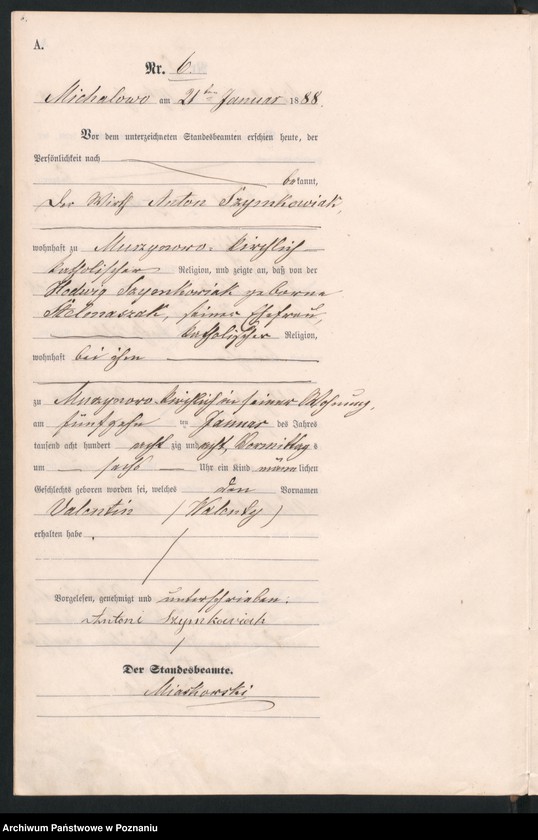 A.
Nr. 6.
Michalowo am 21ten Januar 1888.
Vor dem unterzeichneten Standesbeamten erschien heute, der
Persönlichkeit nach
bekannt,
der Wirth Anton Szymkowiak,
wohnhaft zu Murzynowo-kirchlich
katholischer Religion, und zeigte an, daß von der
Hedwig Szymkowiak geborne
Stelmaszak, seiner Ehefrau,
katholischer Religion,
wohnhaft bei ihm
zu Murzynowo-kirchlich in seiner Wohnung,
am fünfzehn ten Januar des Jahres
tausend acht hundert acht zig und acht, Vormittags
um sechs Uhr ein Kind männlichen
Geschlechts geboren worden sei, welches den Vornamen
Valentin (Walenty)
erhalten habe.
Vorgelesen, genehmigt und unterschrieben:
Antoni Szymkowiak
Der Standesbeamte.
Miaskowski
Archiwum Państwowe w Poznaniu